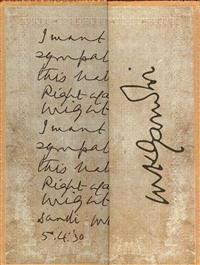 I want
sympat
this bat
Right aga
Might
I want
sympat
this bat
Right aga
Might
Dandi MK
5.4.30
MKGandhi